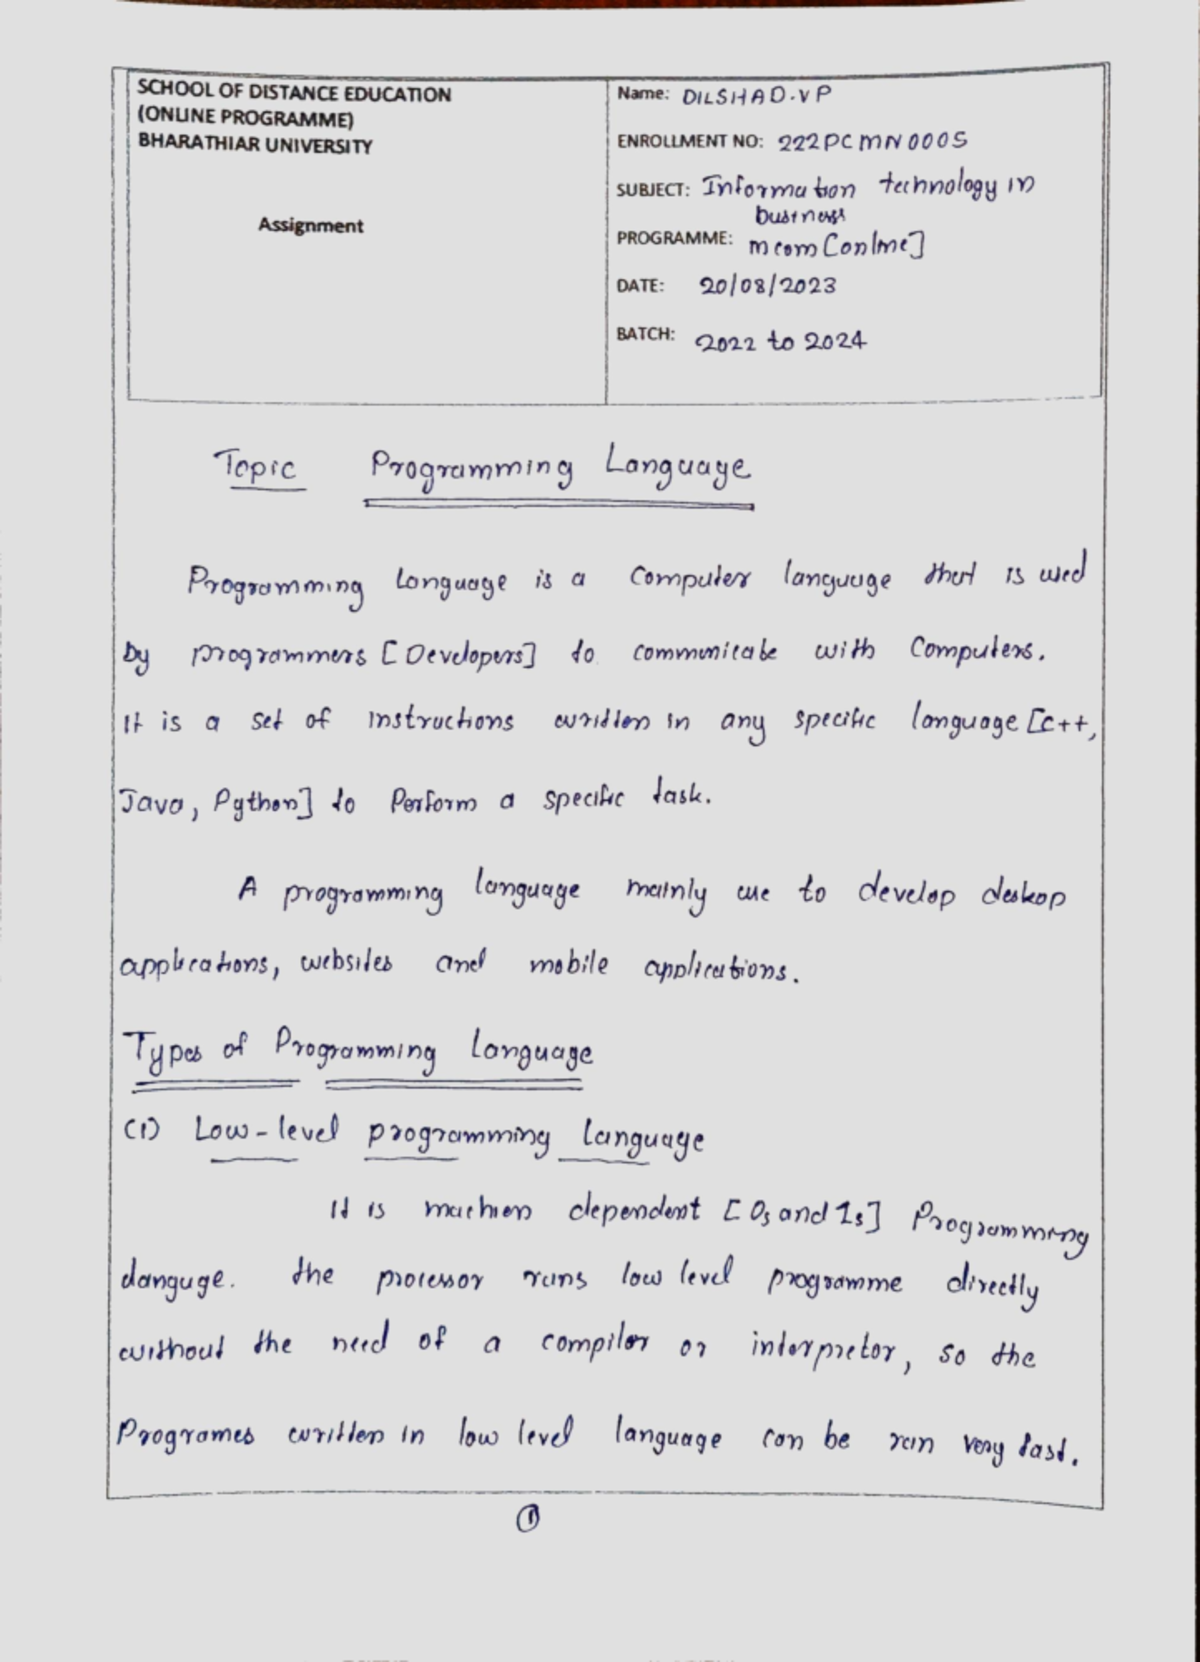 SCHOOL OF DISTANCE EDUCATION
(ONLINE PROGRAMME)
BHARATHIAR UNIVERSITY
Assignment
Name: DILSHAD.VP
ENROLLMENT NO: 222PCMN0005
SUBJECT: Information technology in
business
PROGRAMME: mcom [online]
DATE: 20/08/2023
BATCH: 2022 to 2024
Topic Programming Language
Programming Language is a Computer language that is used
by programmers [Developers] to communicate with Computers.
It is a set of instructions written in any specific language [C++,
Java, Python] to Perform a specific task.
A programming language mainly use to develop deskop
applications, websites and mobile applications.
Types of Programming Language
(1) Low-level programming Language
It is machien dependent [0s and 1s] Programming
danguge. the processor runs low level programme directly
without the need of a compilor or interpretor, so the
Programes written in low level language can be run very fast.
1